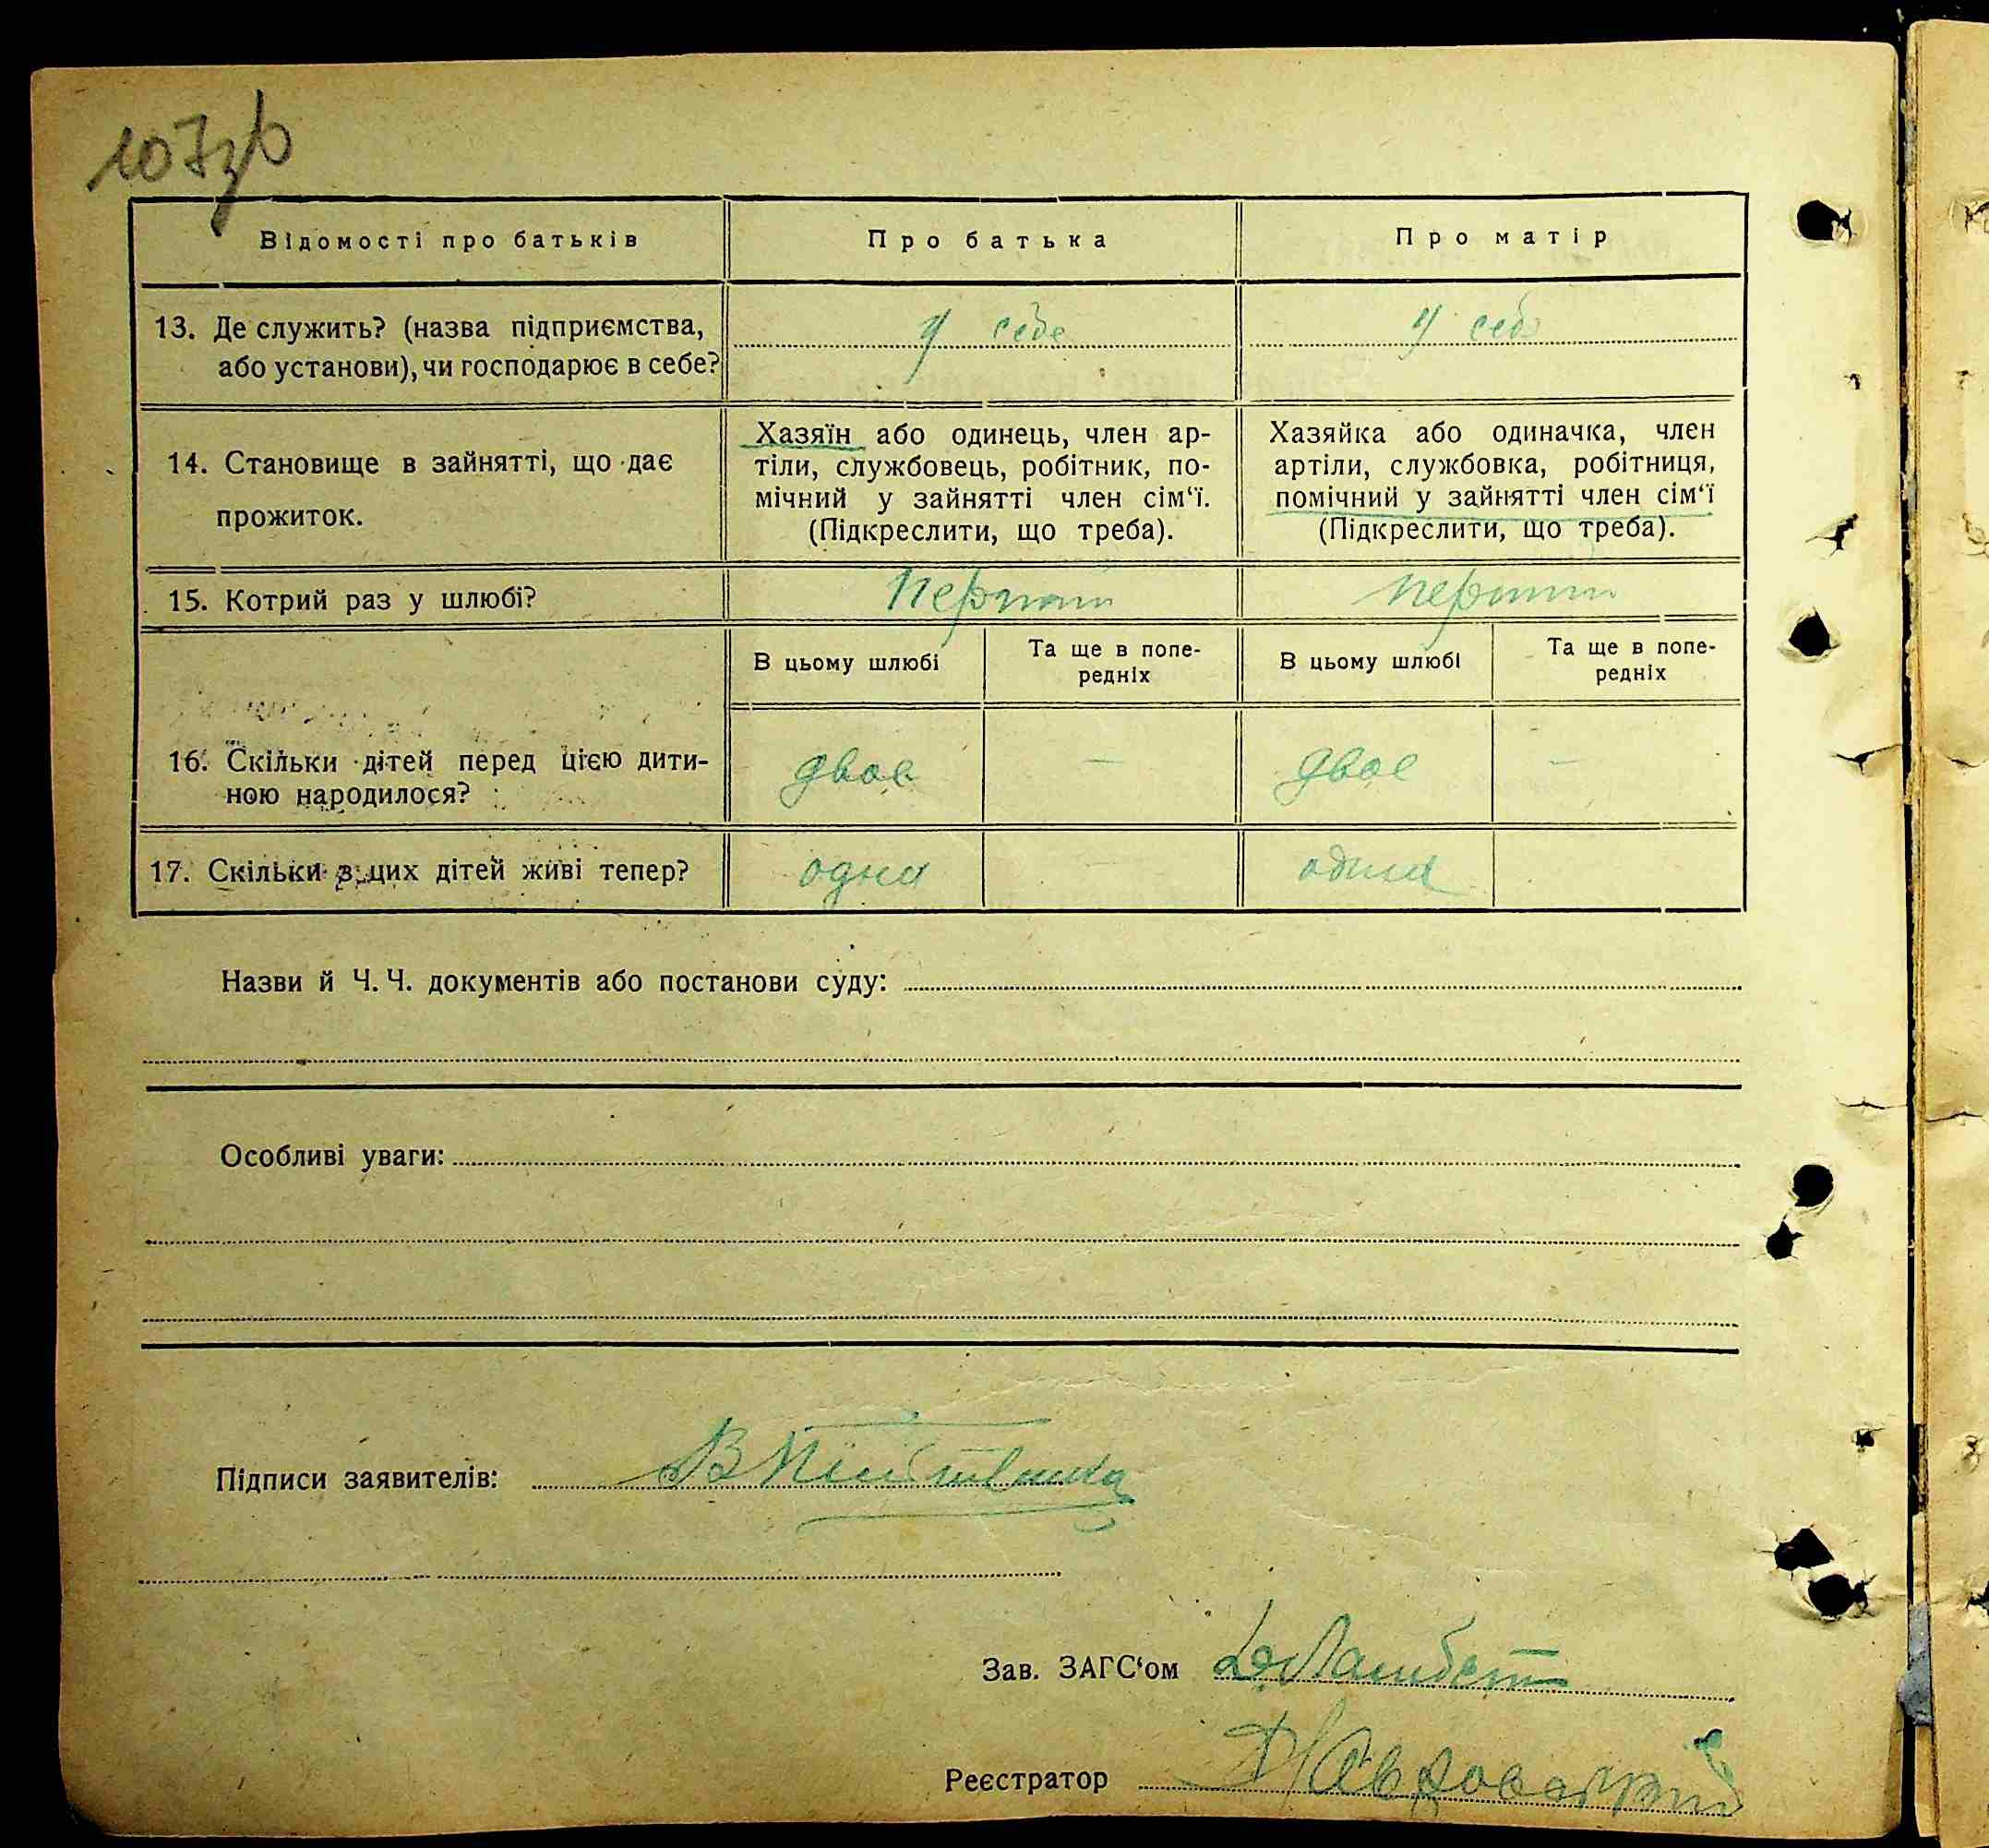 107зв
Відомості про батьків
Про батька
Про матір
13. Де служить? (назва підприємства,
або установи), чи господарює в себе?
у себе
у себе
14. Становище в зайнятті, що дає
прожиток.
Хазяїн або одинець, член ар-
тіли, службовець, робітник, по-
мічний у зайнятті член сім‘ї.
(Підкреслити, що треба).
Хазяйка або одиначка, член
артіли, службовка, робітниця,
помічний у зайнятті член сім‘ї
(Підкреслити, що треба).
15. Котрий раз у шлюбі?
перший
перший
В цьому шлюбі
Та ще в попе-
редніх
В цьому шлюбі
Та ще в попе-
редніх
16. Скільки дітей перед цією дити-
ною народилося?
двоє
—
двоє
—
17. Скільки з цих дітей живі тепер?
одна
—
одна
Назви й Ч. Ч. документів або постанови суду:
Особливі уваги:
Підписи заявителів:
Зав. ЗАГС‘ом
Реєстратор